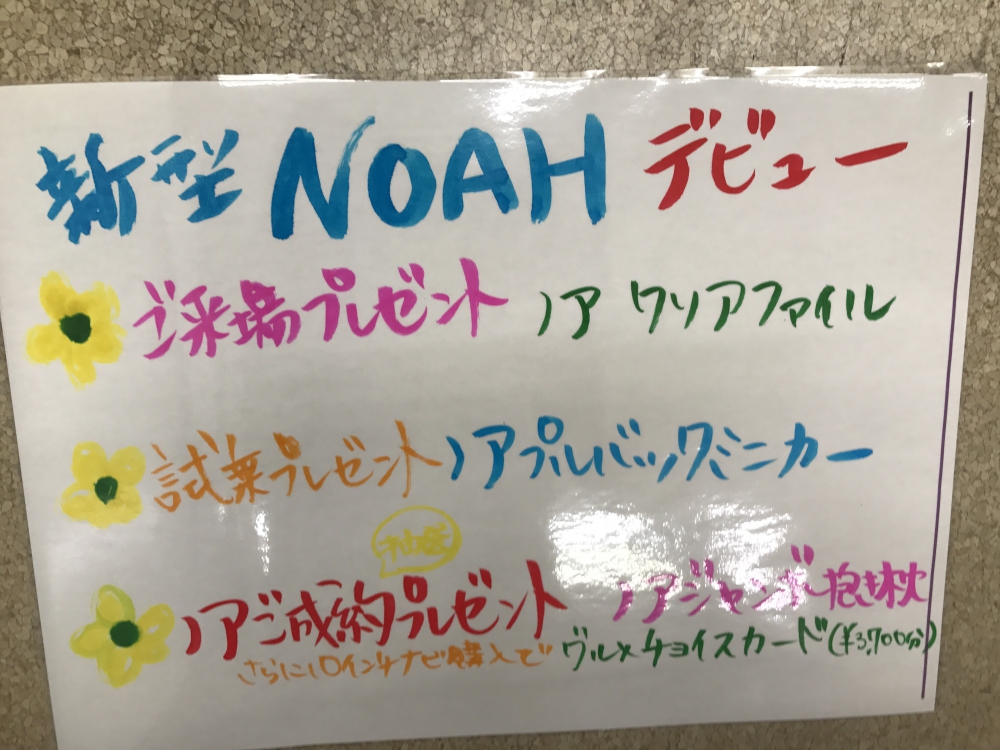 新型 NOAH デビュー
ご来場プレゼント ノア クリアファイル
試乗プレゼント ノアプルバックミニカー
ノアご成約プレゼント ノアジャンボ抱き枕
さらに10インチナビ購入で グルメチョイスカード(¥3,700分)